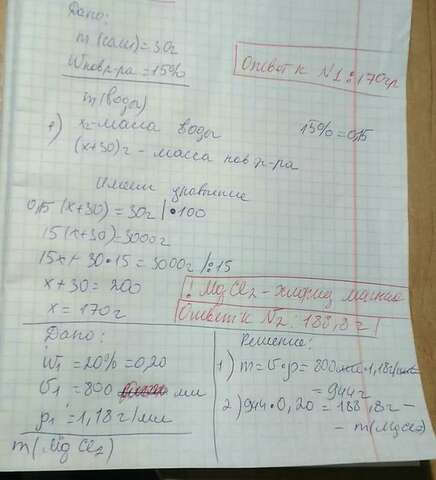 Дано:
m(соли)=30г
Wнов.р-ра=15%
m(воды)
Ответ к №1: 170гр.
1) x-масса воды
15%=0,15
(x+30)г-масса нов р-ра
Имеем уравнение
0,15(x+30)=30г|•100
15(x+30)=3000г
15x+30•15=3000г|:15
x+30=200
x=170г
! MgCl2-хлорид магния
Ответ к №2: 188,8г!
Дано:
W1=20%=0,20
V1=800 мл
ρ1=1,18г/мл
m(MgCl2)
Решение:
1) m=V•ρ=800мл•1,18г/мл
=944г
2) 944•0,20=188,8г-
- m(MgCl2)